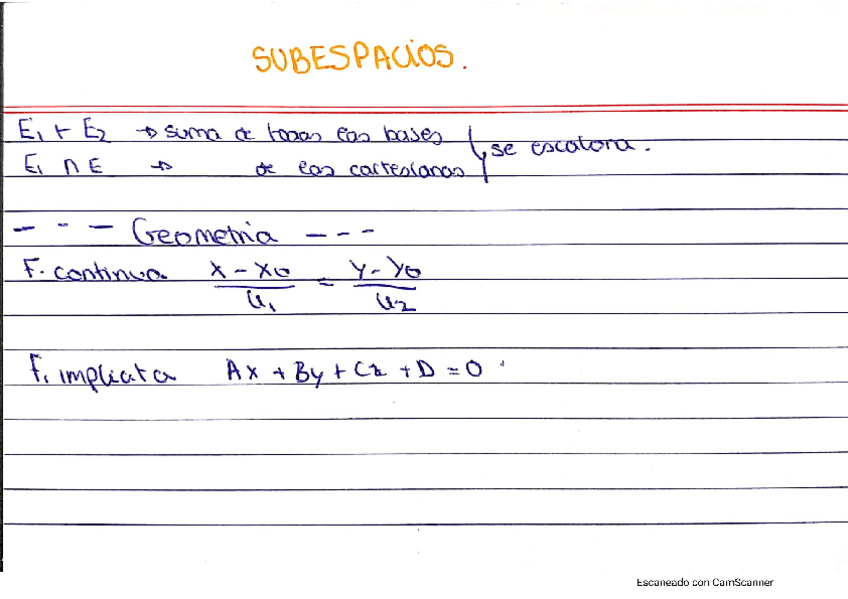 SUBESPACIOS.
E₁ + E₂ → suma de todas las bases } se escalona.
E₁ ∩ E → de las cartesianas
- - - Geometria - - -
F. continua (x - x₀)/u₁ = (y - y₀)/u₂
F. implicita Ax + By + Cz + D = 0
Escaneado con CamScanner